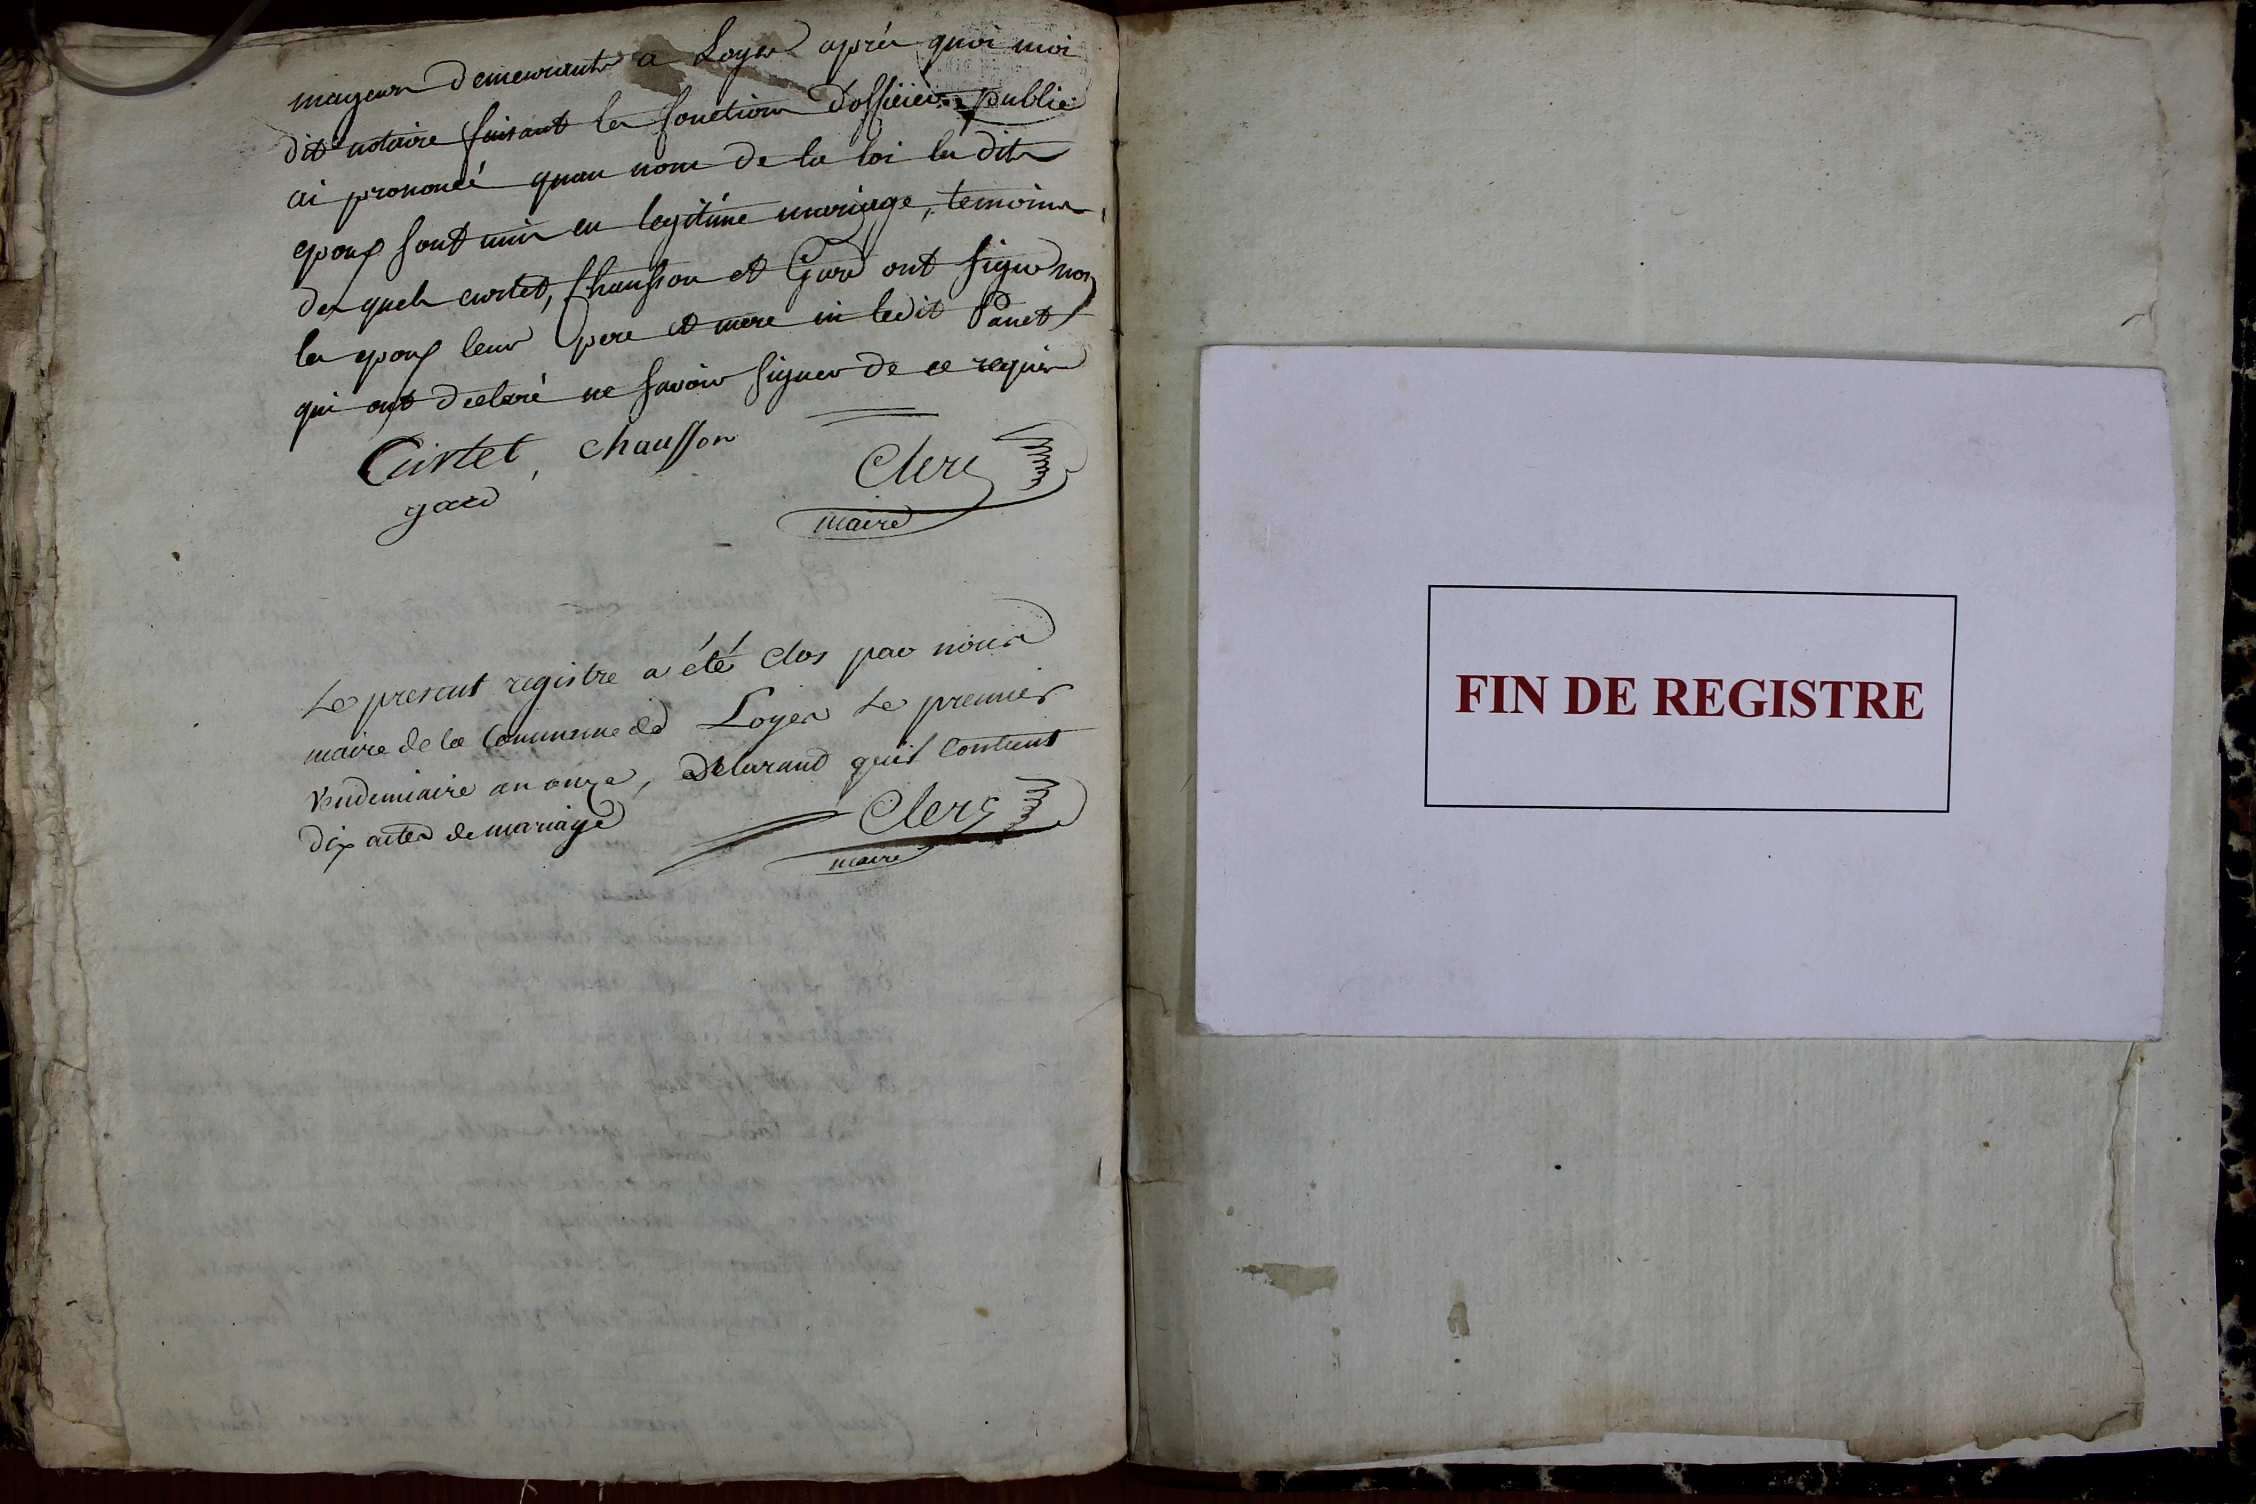 mayeurs demeurants a Loyes après quoi moi
dit notaire faisant les fonctions d'officier public
ai prononcé quau nom de la loi les dits
epoux sont unis en legitime mariage, temoins
des quels curtet, Chausson et Gard ont signé non
les epoux leurs pere et mere ni ledit Panet
qui ont declaré ne savoir signer de ce requis
Curtet, chausson
gard
Clerc
maire
Le present registre a été clos par nous
maire de la Commune de Loyes Le premier
Vendemiaire an onze, Declarand quil Contient
dix actes de mariage
Clerc
maire
FIN DE REGISTRE